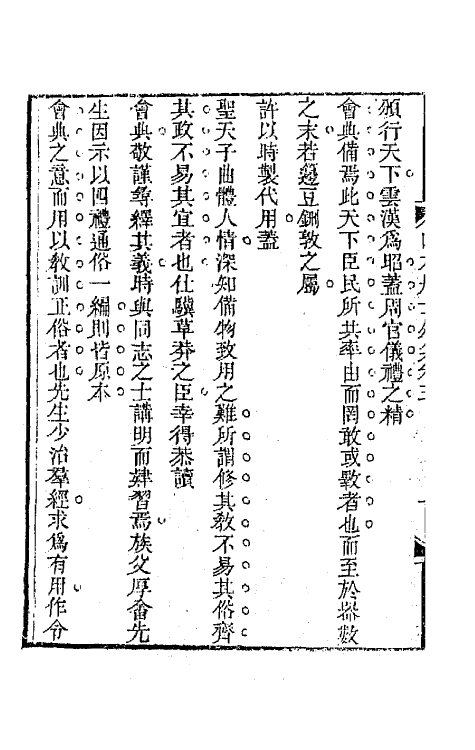 頒行天下雲漢爲昭蓋周官儀禮之精
會典備焉此天下臣民所共率由而罔敢或斁者也而至於器數
之末若籩豆鉶敦之屬
許以時製代用蓋
聖天子曲體人情深知備物致用之難所謂修其敎不易其俗齊
其政不易其宜者也仕驥草莽之臣幸得恭讀
會典敬謹尋繹其義時與同志之士講明而肄習焉族父厚畬先
生因示以四禮通俗一編則皆原本
會典之意而用以敎訓正俗者也先生少治羣經求爲有用作令